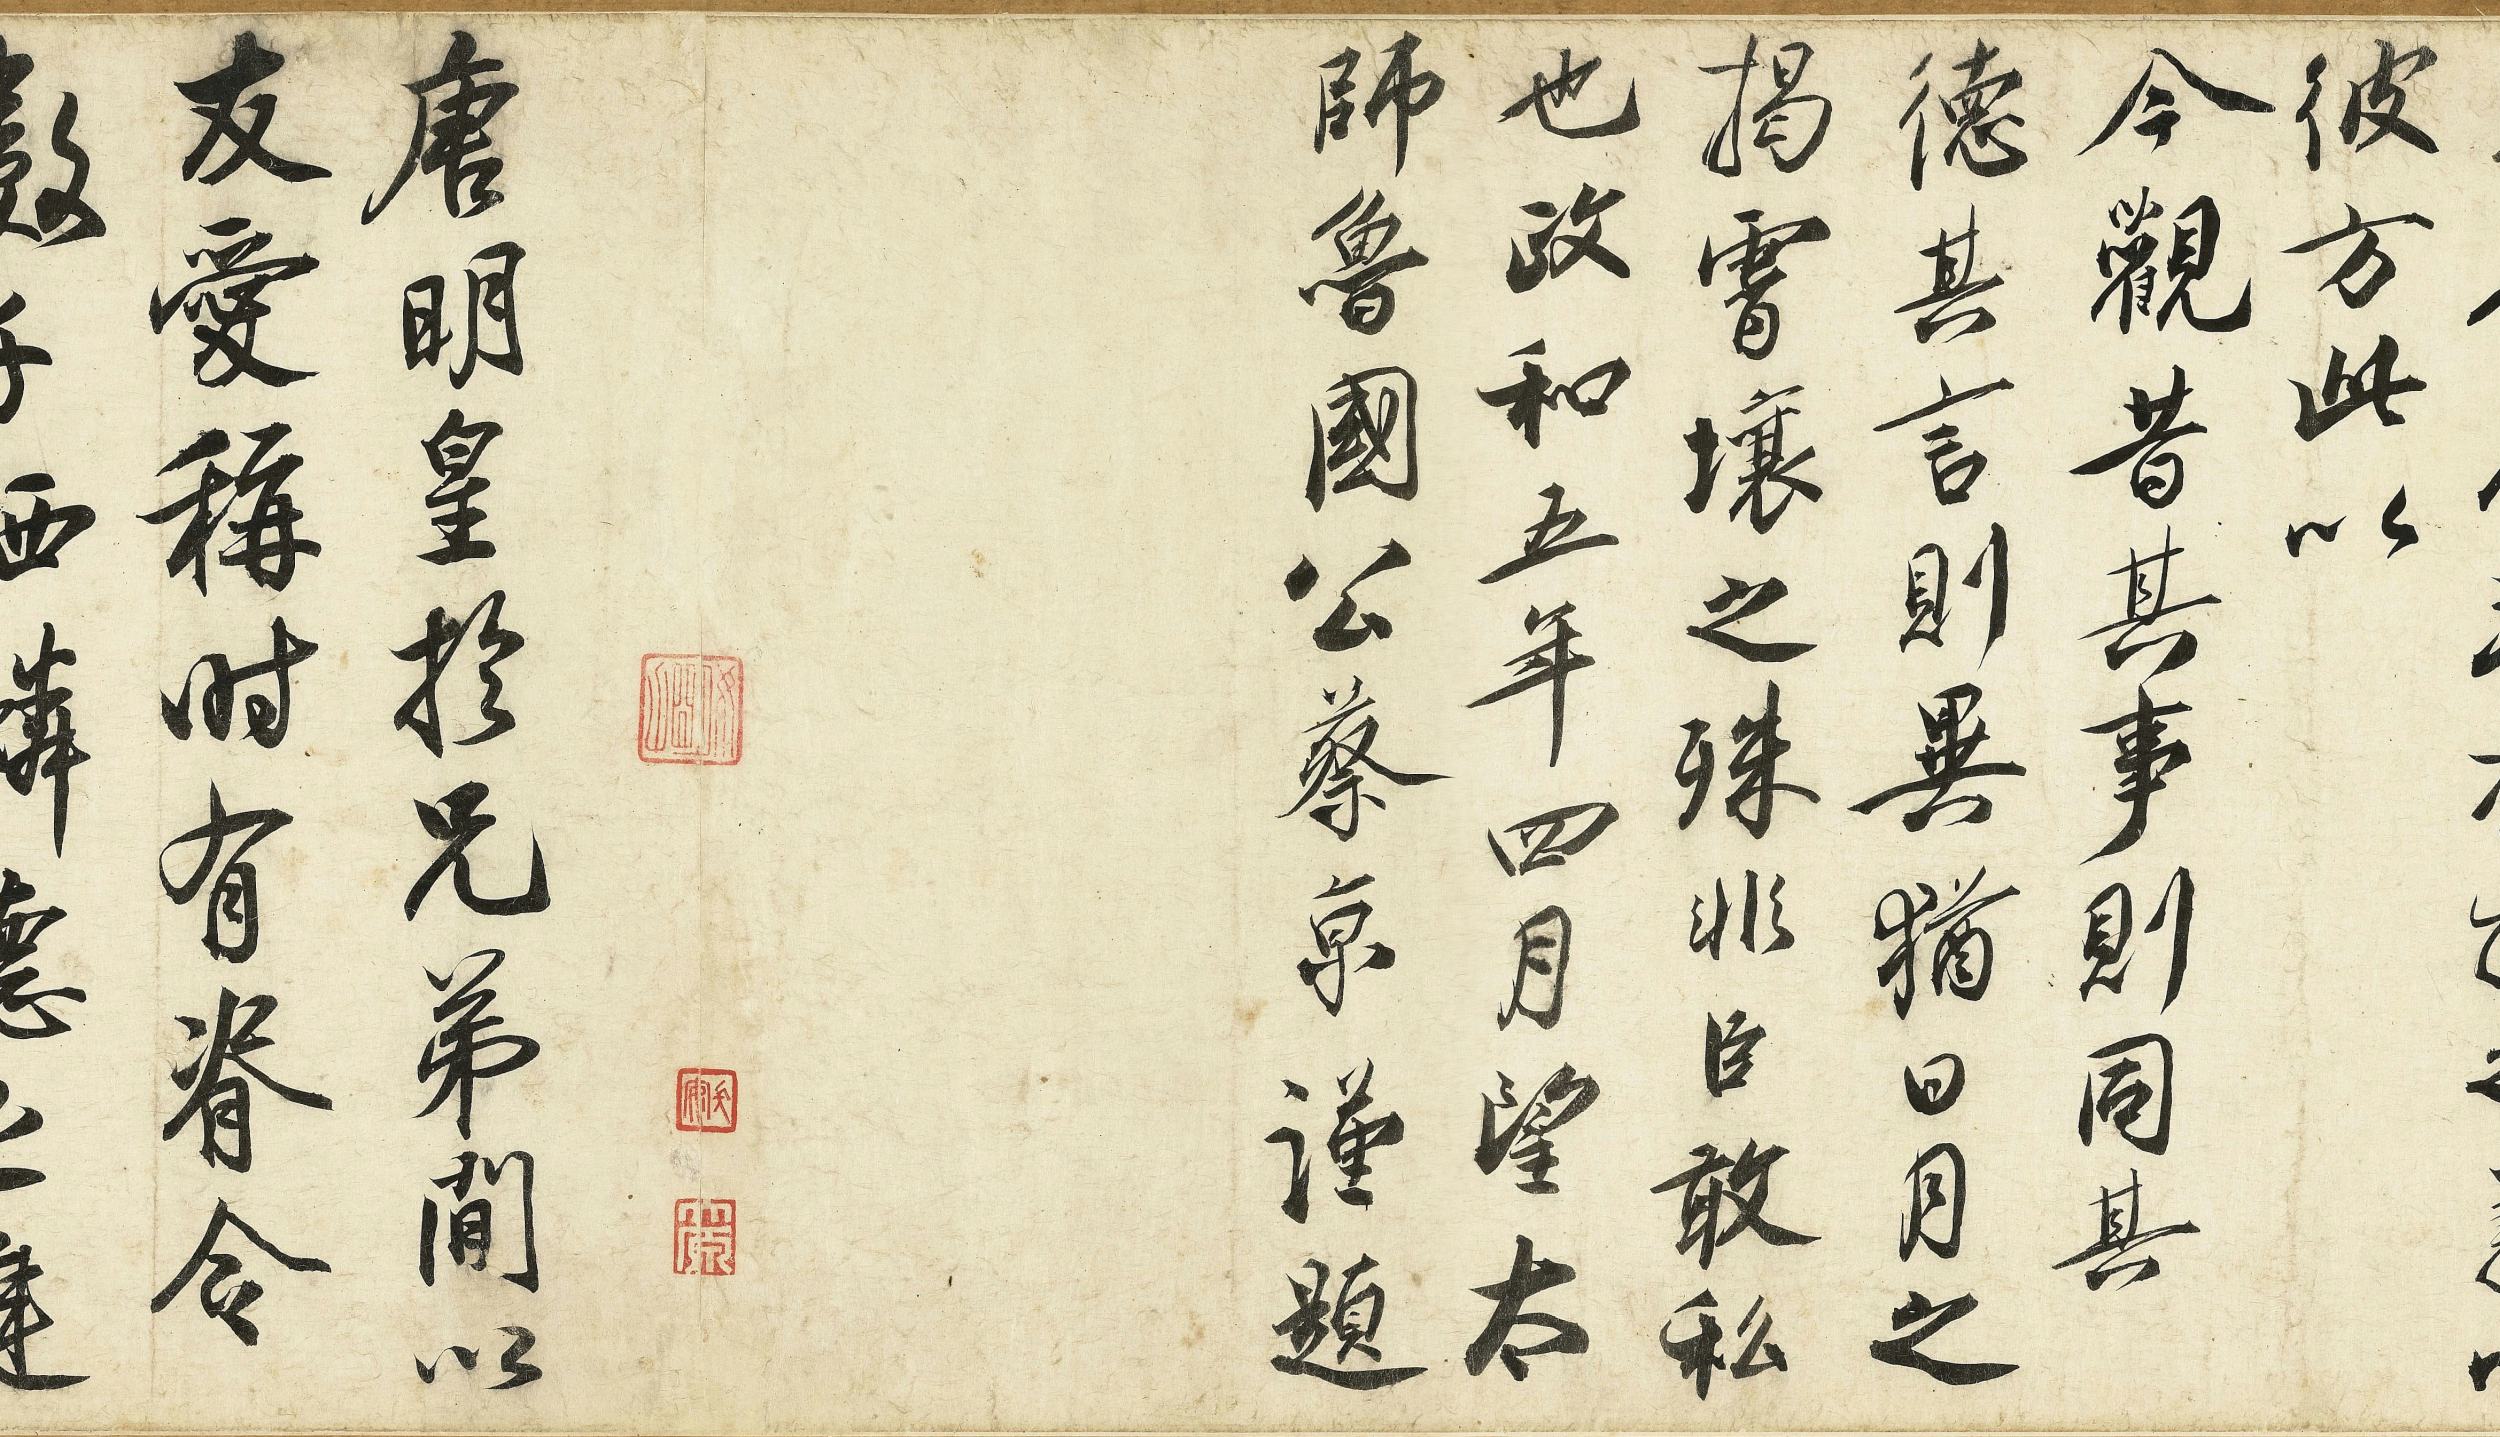 彼方此以
今觀昔其事則同其
德其言則異猶日月之
揭霄壤之殊非臣敢私
也政和五年四月望太
師魯國公蔡京謹題
唐明皇於兄弟間以
友愛稱時有脊令
數千栖麟德之